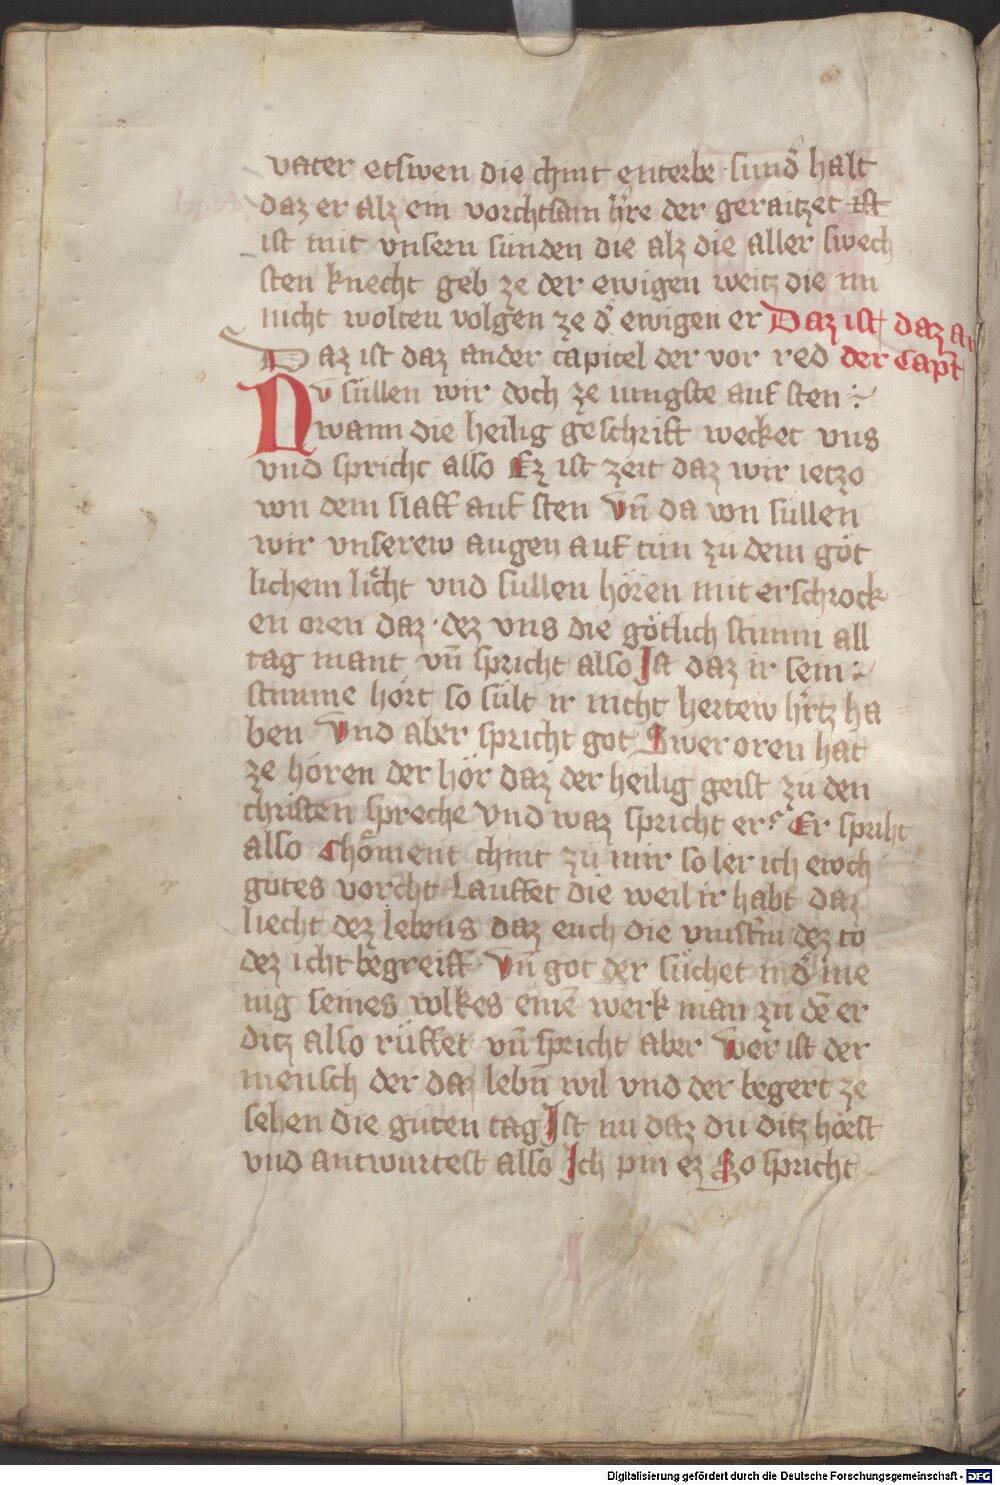 vater etswen die chint enterbe · sundͦ halt
daz er alz ein vorchtsam hͬre der geraitzet ist
ist mit vnsern sunden die alz die aller swech
sten knecht geb ze der ewigen weitz die im
nicht wolten volgen ze dͦ ewigen er Daz ist daz an
Daz ist daz ander capitel der vor red der Capͥt
Nv süllen wir doch ze iungste auf sten :~
wann die heilig geschrift wecket vns
vnd spricht also Ez ist zeit daz wir ietzo
von dem slaff auf sten Vn̄ da von süllen
wir vnserew augen auf tün zü dem göt
lichem liͤcht vnd sullen hören mit erschrock
en oren daz · dez vns die götlich stimm all
tag mant vn̄ spricht also Ist daz ir sein :~
stimme hört so sült ir nicht hertew hͬtz ha
ben Vnd aber spricht got Swer oren hat
ze hören der hör daz der heilig geist zü den
christen spreche vnd waz spricht er? Er spriht
also Chöment chint zü mir so ler ich ewch
gotes vorcht Lauffet die weil ir habt daz
liecht dez lebens daz euch die vinstͬin dez to
dez icht begreiff · Vn̄ got der süchet in dͦ me
nig seines volkes einē werk man zü dē er
ditz also rüffet vn̄ spricht aber Wer ist der
mensch der daz lebn̄ wil vnd der begert ze
sehen die güten tag Ist nu daz du ditz hörst
vnd antwurtest also Ich pin ez So spricht
Digitalisierung gefördert durch die Deutsche Forschungsgemeinschaft - DFG